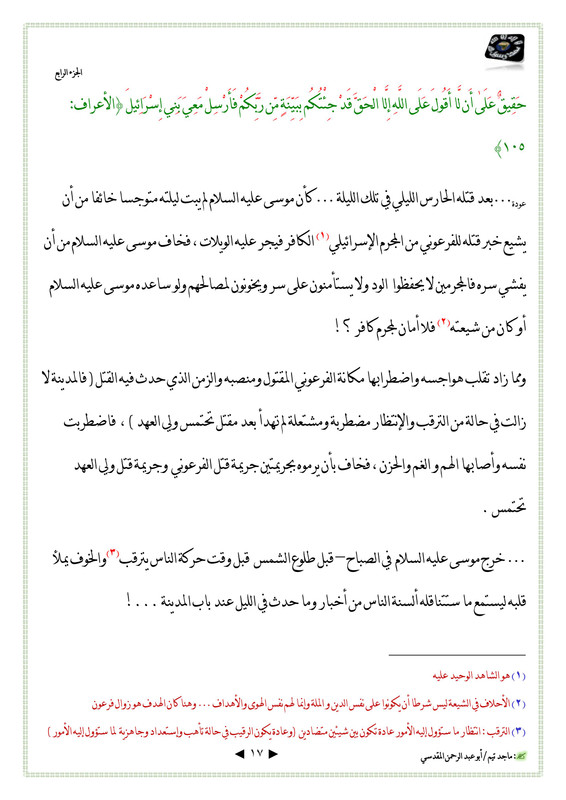 الجزء الرابع
حَقِيقٌ عَلَىٰ أَن لَّا أَقُولَ عَلَى اللَّهِ إِلَّا الْحَقَّ قَدْ جِئْتُكُم بِبَيِّنَةٍ مِّن رَّبِّكُمْ فَأَرْسِلْ مَعِيَ بَنِي إِسْرَائِيلَ ﴿الأعراف:
١٠٥﴾
عودة...بعد قتله الحارس الليلي في تلك الليلة ... كأن موسى عليه السلام لم يبت ليلته متوجسا خائفا من أن
يشيع خبر قتله للفرعوني من المجرم الإسرائيلي(١) الكافر فيجر عليه الويلات ، فخاف موسى عليه السلام من أن
يفشي سره فالمجرمين لا يحفظوا الود ولا يستأمنون على سر ويخونون لمصالحهم ولو ساعده موسى عليه السلام
أو كان من شيعته(٢) فلا أمان لمجرم كافر ؟ !
ومما زاد تقلب هواجسه واضطرابها مكانة الفرعوني المقتول ومنصبه والزمن الذي حدث فيه القتل ( فالمدينة لا
زالت في حالة من الترقب والإنتظار مضطربة ومشتعلة لم تهدأ بعد مقتل تحتمس ولي العهد ) ، فاضطربت
نفسه وأصابها الهم و الغم والحزن ، فخاف بأن يرموه بجريمتين جريمة قتل الفرعوني وجريمة قتل ولي العهد
تحتمس .
... خرج موسى عليه السلام في الصباح – قبل طلوع الشمس قبل وقت حركة الناس يترقب(٣) والخوف يملأ
قلبه ليستمع ما ستتناقله ألسنة الناس من أخبار وما حدث في الليل عند باب المدينة ... !
(١) هو الشاهد الوحيد عليه
(٢) الأحلاف في الشيعة ليس شرطا أن يكونوا على نفس الدين و الملة وإنما لهم نفس الهوى والأهداف ... وهنا كان الهدف هو زوال فرعون
(٣) الترقب : انتظار ما ستؤول إليه الأمور عادة تكون بين شيئين متضادين (وعادة يكون الرقيب في حالة تأهب وإستعداد وجاهزية لما ستؤول إليه الأمور )
◄ ١٧ ►
: ماجد تيم / أبو عبد الرحمن المقدسي